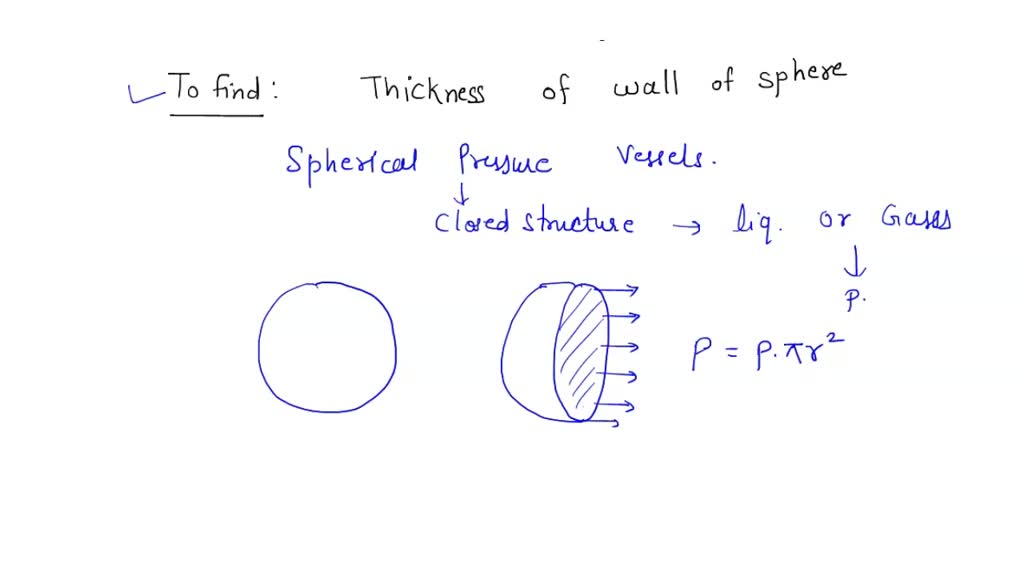 To find : Thickness of wall of sphere
Spherical Pressure Vessels.
↓
Closed structure → liq. or Gases
↓
p.
P = p.πr²